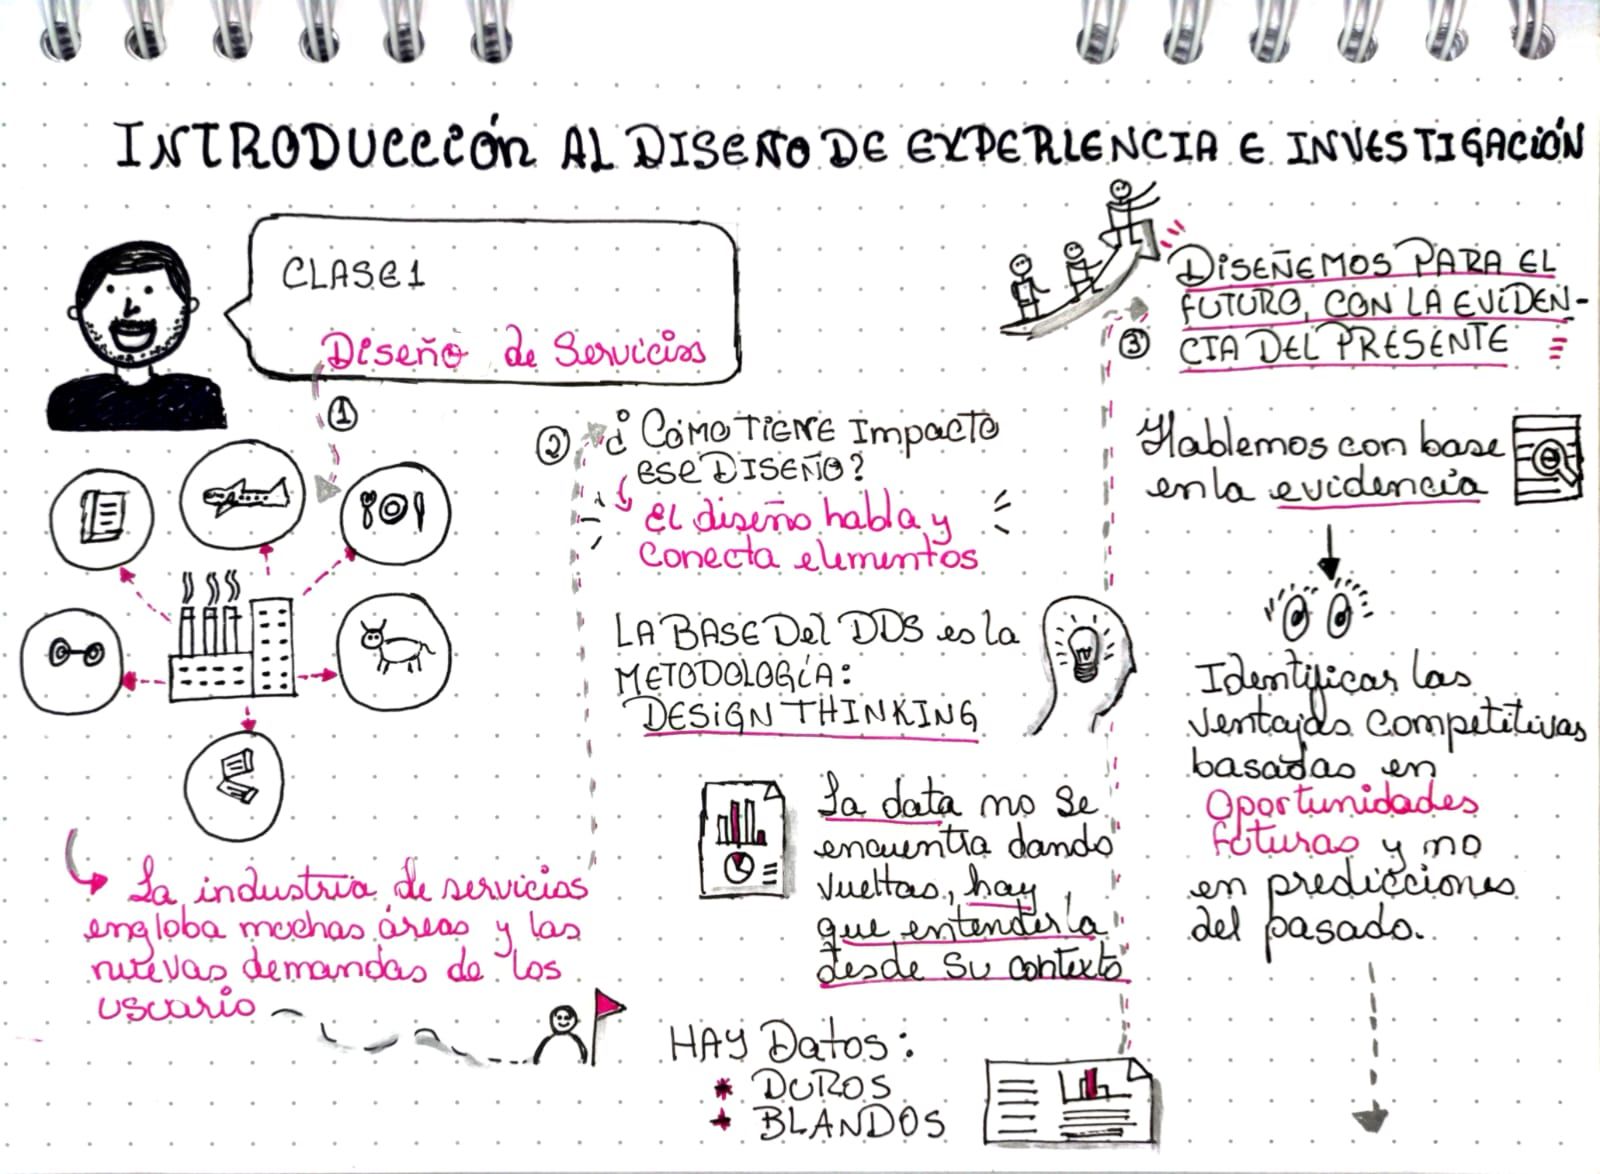 INTRODUCCIÓN AL DISEÑO DE EXPERIENCIA E INVESTIGACIÓN
CLASE 1
Diseño de Servicios
1
La industria de servicios
engloba muchas áreas y las
nuevas demandas de los
usuario
2
¿CÓMO TIENE Impacto
ESE DISEÑO?
El diseño habla y
conecta elementos
LA BASE Del DDS es la
METODOLOGÍA:
DESIGN THINKING
La data no se
encuentra dando
vueltas, hay
que entenderla
desde su contexto
HAY Datos:
* DUROS
+ BLANDOS
3
DISEÑEMOS PARA EL
FUTURO, CON LA EVIDEN-
CIA DEL PRESENTE
Hablemos con base
en la evidencia
Identificar las
ventajas competitivas
basadas en
Oportunidades
futuras y no
en predicciones
del pasado.